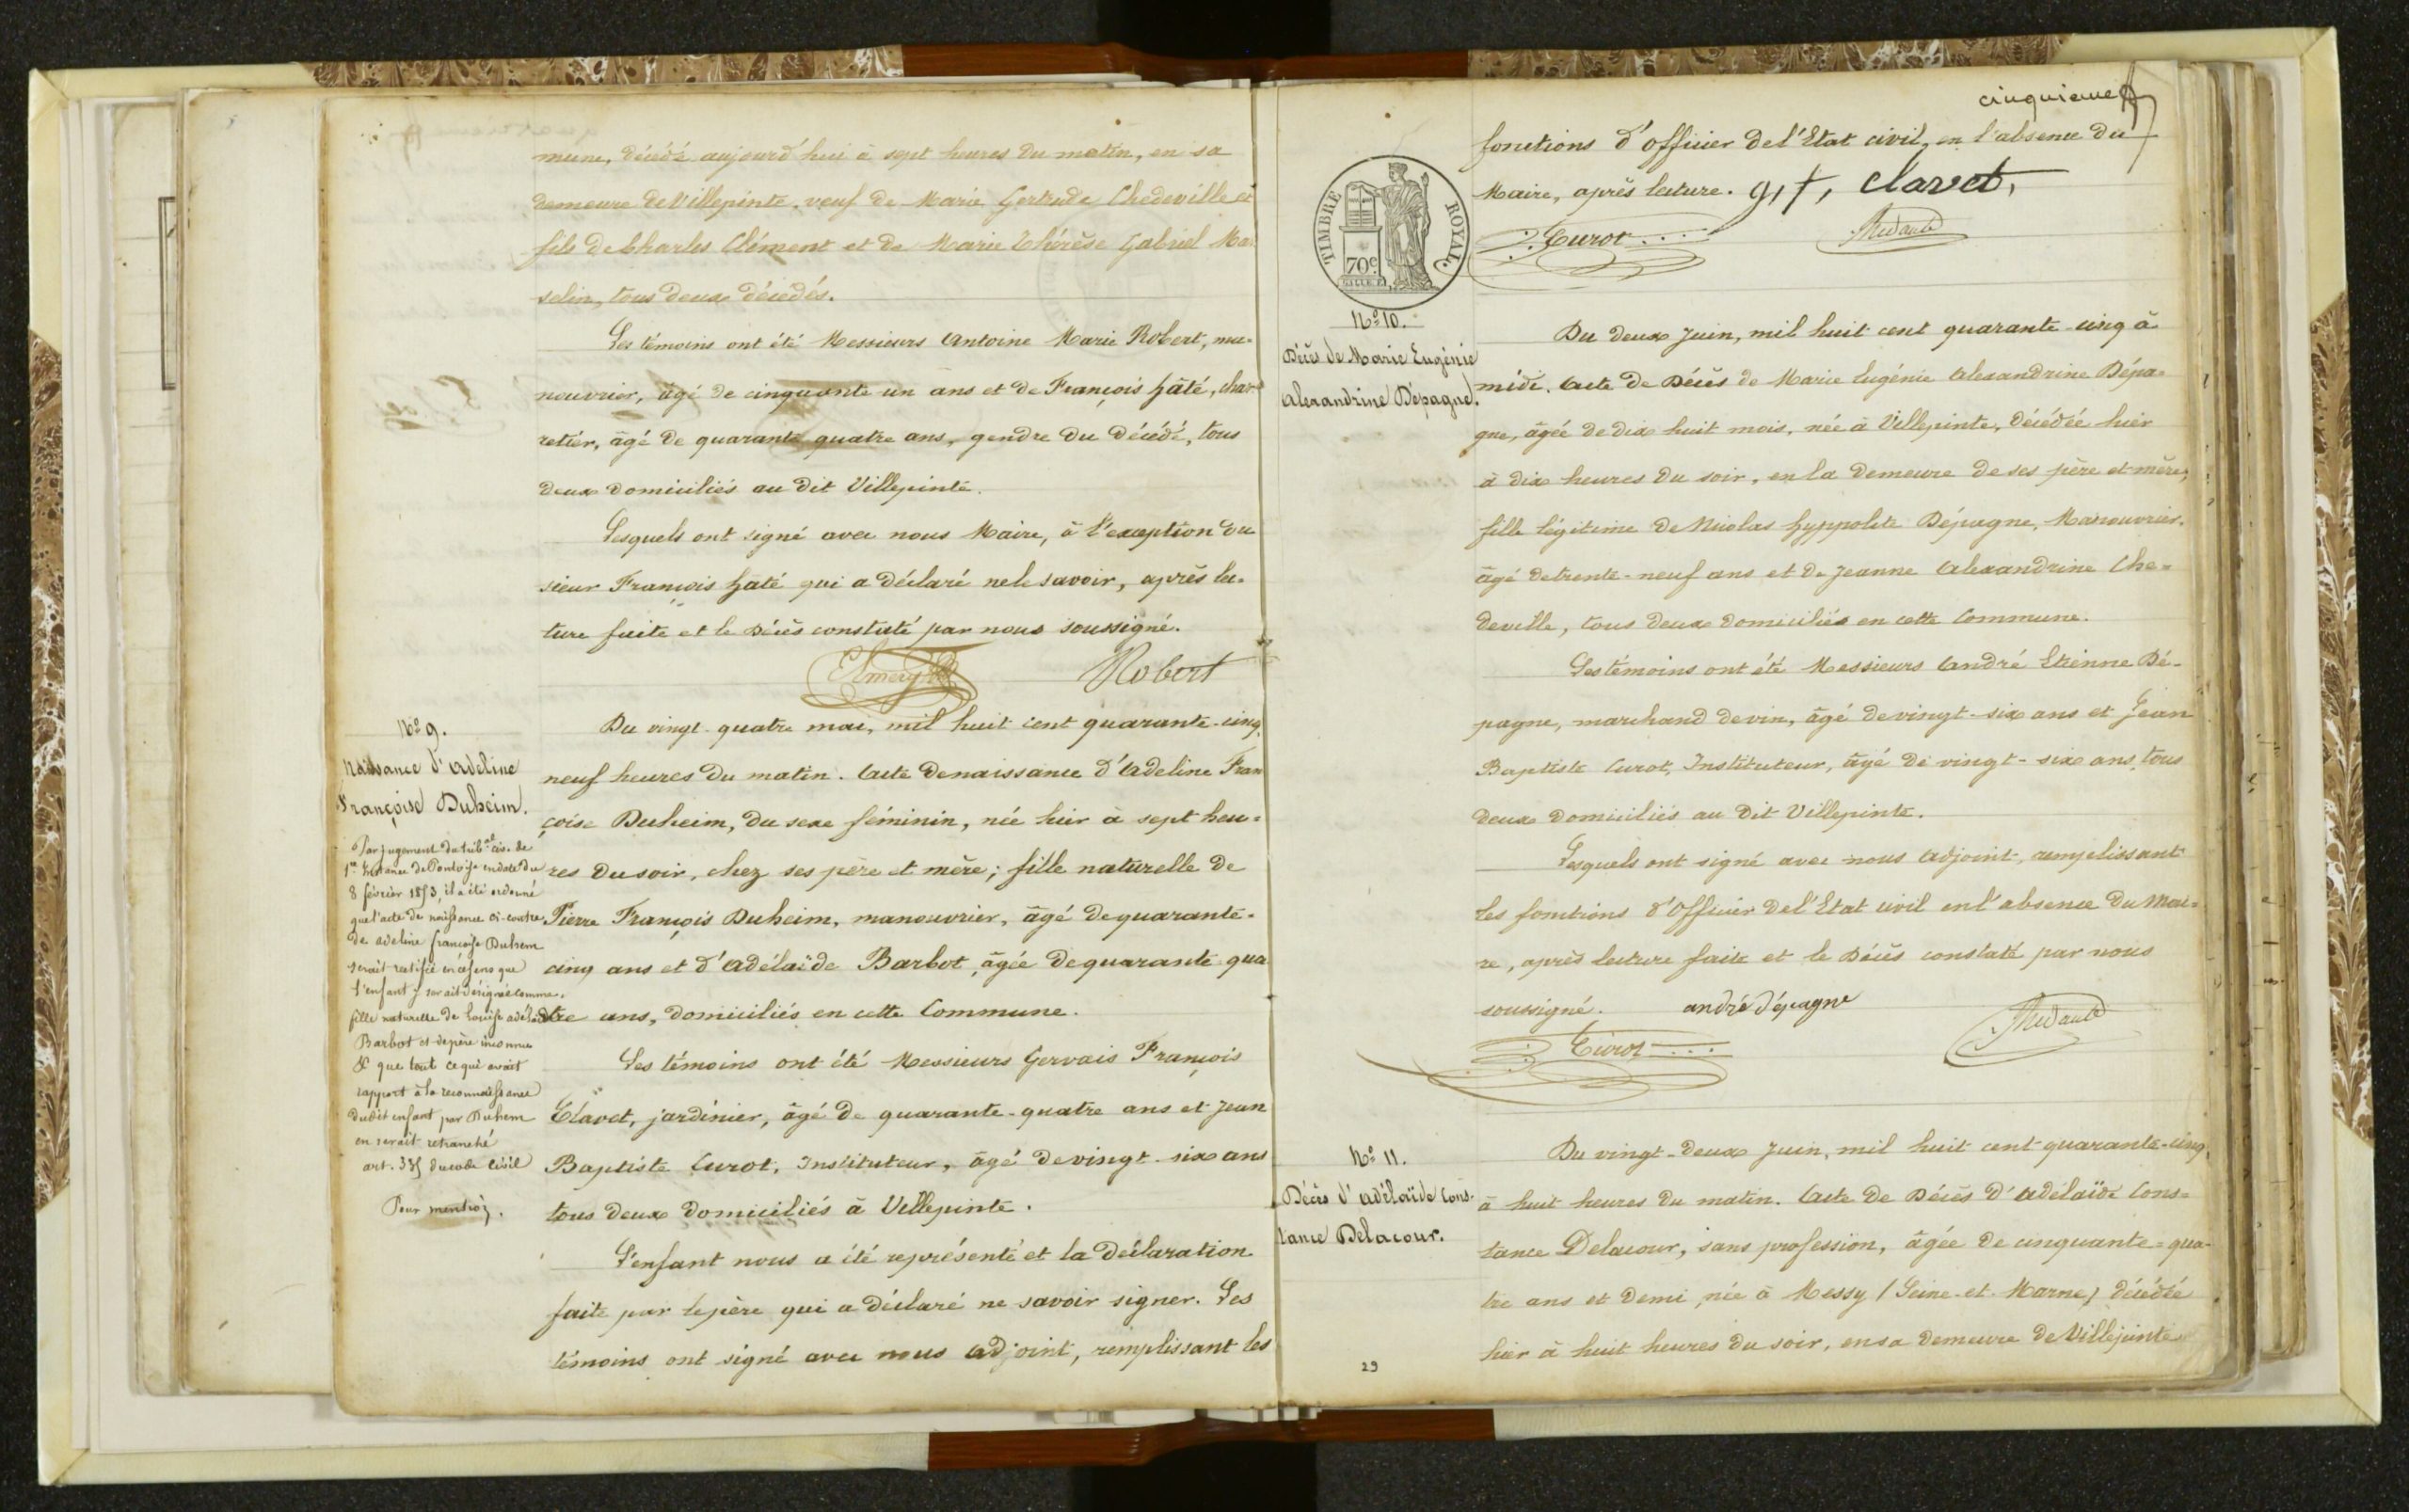 mune, décédé aujourd'hui à sept heures du matin, en sa
demeure de Villepinte. veuf de Marie Gertrude Chedeville et
fils de Charles Clément et de Marie Thérèse Gabriel Mar
selin, tous deux décédés.
Les témoins ont été Messieurs Antoine Marie Robert, ma=
nouvrier, âgé de cinquante un ans et de François hâté, char
retier, âgé de quarante quatre ans, gendre du décédé, tous
deux domiciliés au dit Villepinte.
Lesquels ont signé avec nous Maire, à l'exception du
sieur François hâté qui a déclaré ne le savoir, après lec=
ture faite et le Décès constaté par nous soussigné.
Robert
No 9.
Naissance d'Adeline
Françoise Duheim.
Par jugement du trib.al civ. de
1re instance de Pontoise en date du
8 février 1853, il a été ordonné
que l'acte de naissance ci-contre
de adeline françoise Duhem
serait rectifié en ce sens que
l'enfant y serait désignée comme
fille naturelle de Louise adélaïde
Barbot et de père inconnu
& que tout ce qui avait
rapport à la reconnaissance
dudit enfant par Duhem
en serait retranché
art. 335 du code Civil
Pour mention.
Du vingt-quatre mai, mil huit cent quarante-cinq,
neuf heures du matin. Acte de naissance d'Adeline Fran
çoise Duheim, du sexe féminin, née hier à sept heu=
res du soir, chez ses père et mère; fille naturelle de
Pierre François Duheim, manouvrier, âgé de quarante-
cinq ans et d'Adélaïde Barbot, âgée de quarante-qua
tre ans, domiciliés en cette Commune.
Les témoins ont été Messieurs Gervais François
Clavet, jardinier, âgé de quarante-quatre ans et Jean
Baptiste Curot, Instituteur, âgé de vingt-six ans
tous deux domiciliés à Villepinte.
L'enfant nous a été représenté et la déclaration
faite par le père qui a déclaré ne savoir signer. Les
témoins ont signé avec nous Adjoint, remplissant les
cinquième
fonctions d'Officier de l'Etat civil, en l'absence du
Maire, après lecture. g, f, Clavet,
Curot
TIMBRE ROYAL
70c
No 10.
Décès de Marie Eugénie
Alexandrine Dépagne.
Du deux Juin, mil huit cent quarante-cinq à
midi. Acte de Décès de Marie Eugénie Alexandrine Dépa=
gne, âgée de dix huit mois, née à Villepinte, décédée hier
à dix heures du soir, en la demeure de ses père et mère,
fille légitime de Nicolas hyppolite Dépagne, Manouvrier,
âgé de trente-neuf ans et de Jeanne Alexandrine Che=
deville, tous deux domiciliés en cette Commune.
Les témoins ont été Messieurs André Etienne Dé-
pagne, marchand de vin, âgé de vingt-six ans et Jean
Baptiste Curot, Instituteur, âgé de vingt-six ans, tous
deux domiciliés au dit Villepinte.
Lesquels ont signé avec nous Adjoint, remplissant
les fonctions d'Officier de l'Etat civil en l'absence du Mai=
re, après lecture faite et le Décès constaté par nous
soussigné. andré dépagne
Curot
No 11.
Décès d'Adélaïde Cons-
tance Delacour.
Du vingt-deux Juin, mil huit cent quarante-cinq,
à huit heures du matin. Acte de Décès d'Adélaïde Cons=
tance Delacour, sans profession, âgée de cinquante=qua-
tre ans et demi, née à Messy (Seine-et-Marne) décédée
hier à huit heures du soir, en sa demeure de Villepinte
29